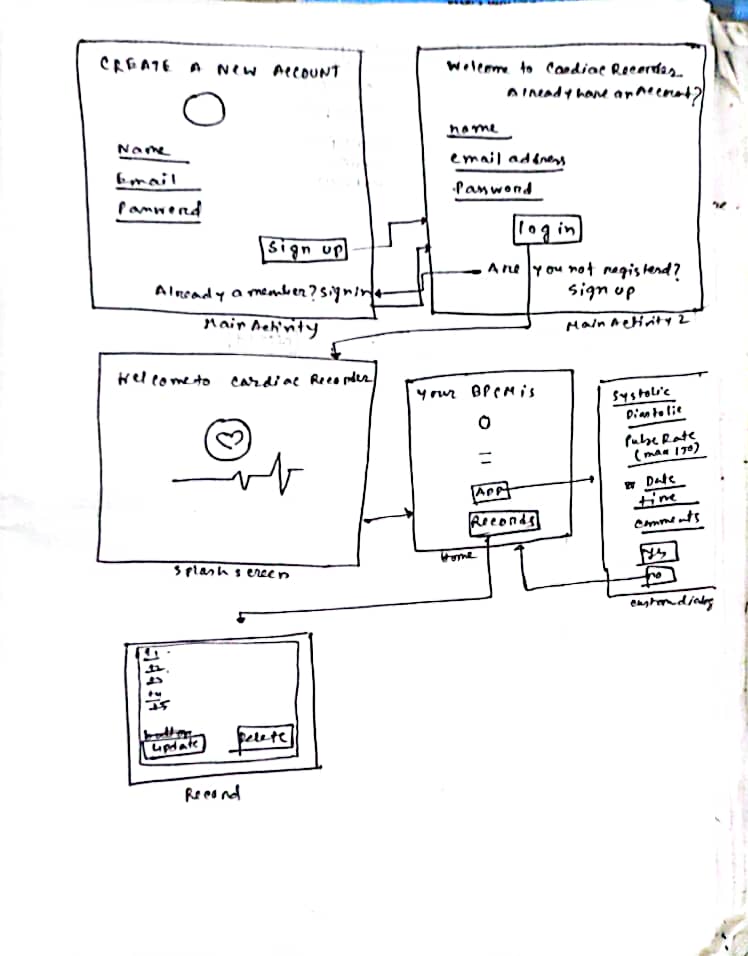 CREATE A NEW ACCOUNT
Name
Email
Password
Sign up
Already a member? Sign in
Main Activity
Welcome to Cardiac Recorder
Already have an Account?
name
email address
Password
log in
Are you not registerd?
Sign up
Main Activity 2
Welcome to Cardiac Recorder
Splash screen
Your BPCM is
0
=
Records
Home
Systolic
Diastolic
Pulse Rate
Date
time
comments
yes
no
custom dialog
t1
t2
t3
t4
t5
button
update
Delete
Record